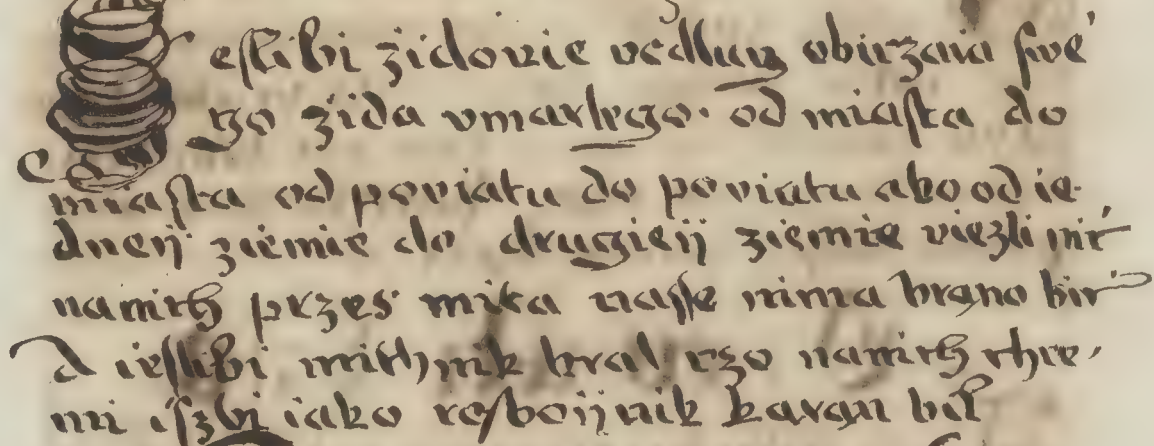 Jeſlibi zidovie vedlug obirzaia ſwe
go zida vmarlego. od miaſta do
miaſta od poviatu do poviatu abo od ie
dneÿ ziemie do drugieÿ ziemie viezli nić
nanich przes mita naſſe nima brano bić
A ieſlibi mithnik bral czo nanich thre
mi iſzbi iako rosboÿnik karan bil